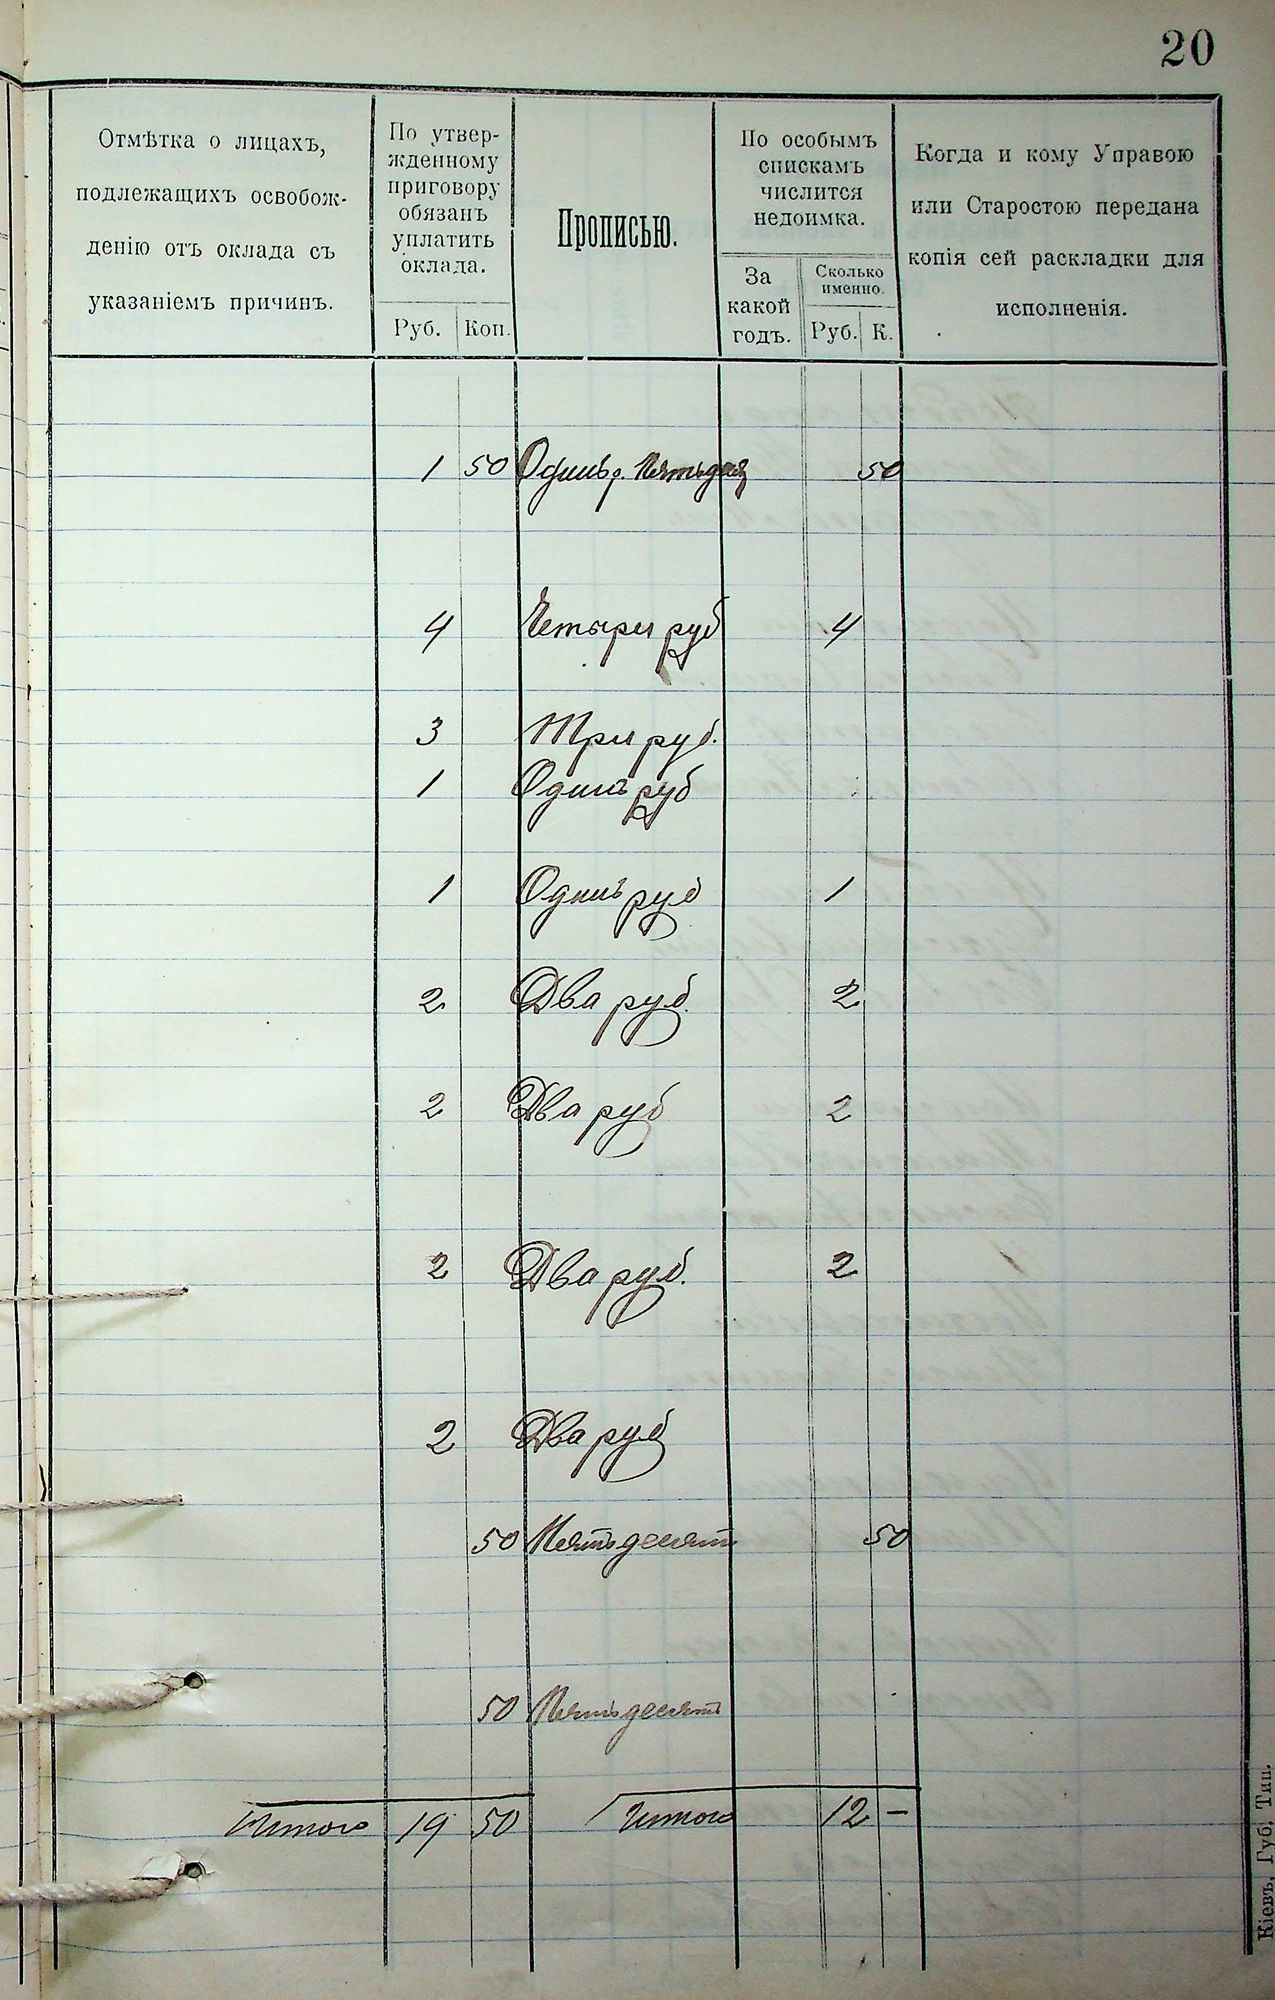 20
Отмѣтка о лицахъ,
подлежащихъ освобож-
денію отъ оклада съ
указаніемъ причинъ.
По утвер-
жденному
приговору
обязанъ
уплатить
оклада.
Руб. Коп.
Прописью.
По особымъ
спискамъ
числится
недоимка.
За
какой
годъ.
Сколько
именно.
Руб. К.
Когда и кому Управою
или Старостою передана
копія сей раскладки для
исполненія.
1 50 Одинъ р. Пятьдес 50
4 Четыри руб 4
3 Три руб.
1 Одинъ руб
1 Одинъ руб 1
2 Два руб. 2
2 Два руб 2
2 Два руб. 2
2 Два руб
50 Пятьдесят 50
50 Пятьдесят
Итого 19 50 Итого 12 —
Кіевъ, Губ. Тип.